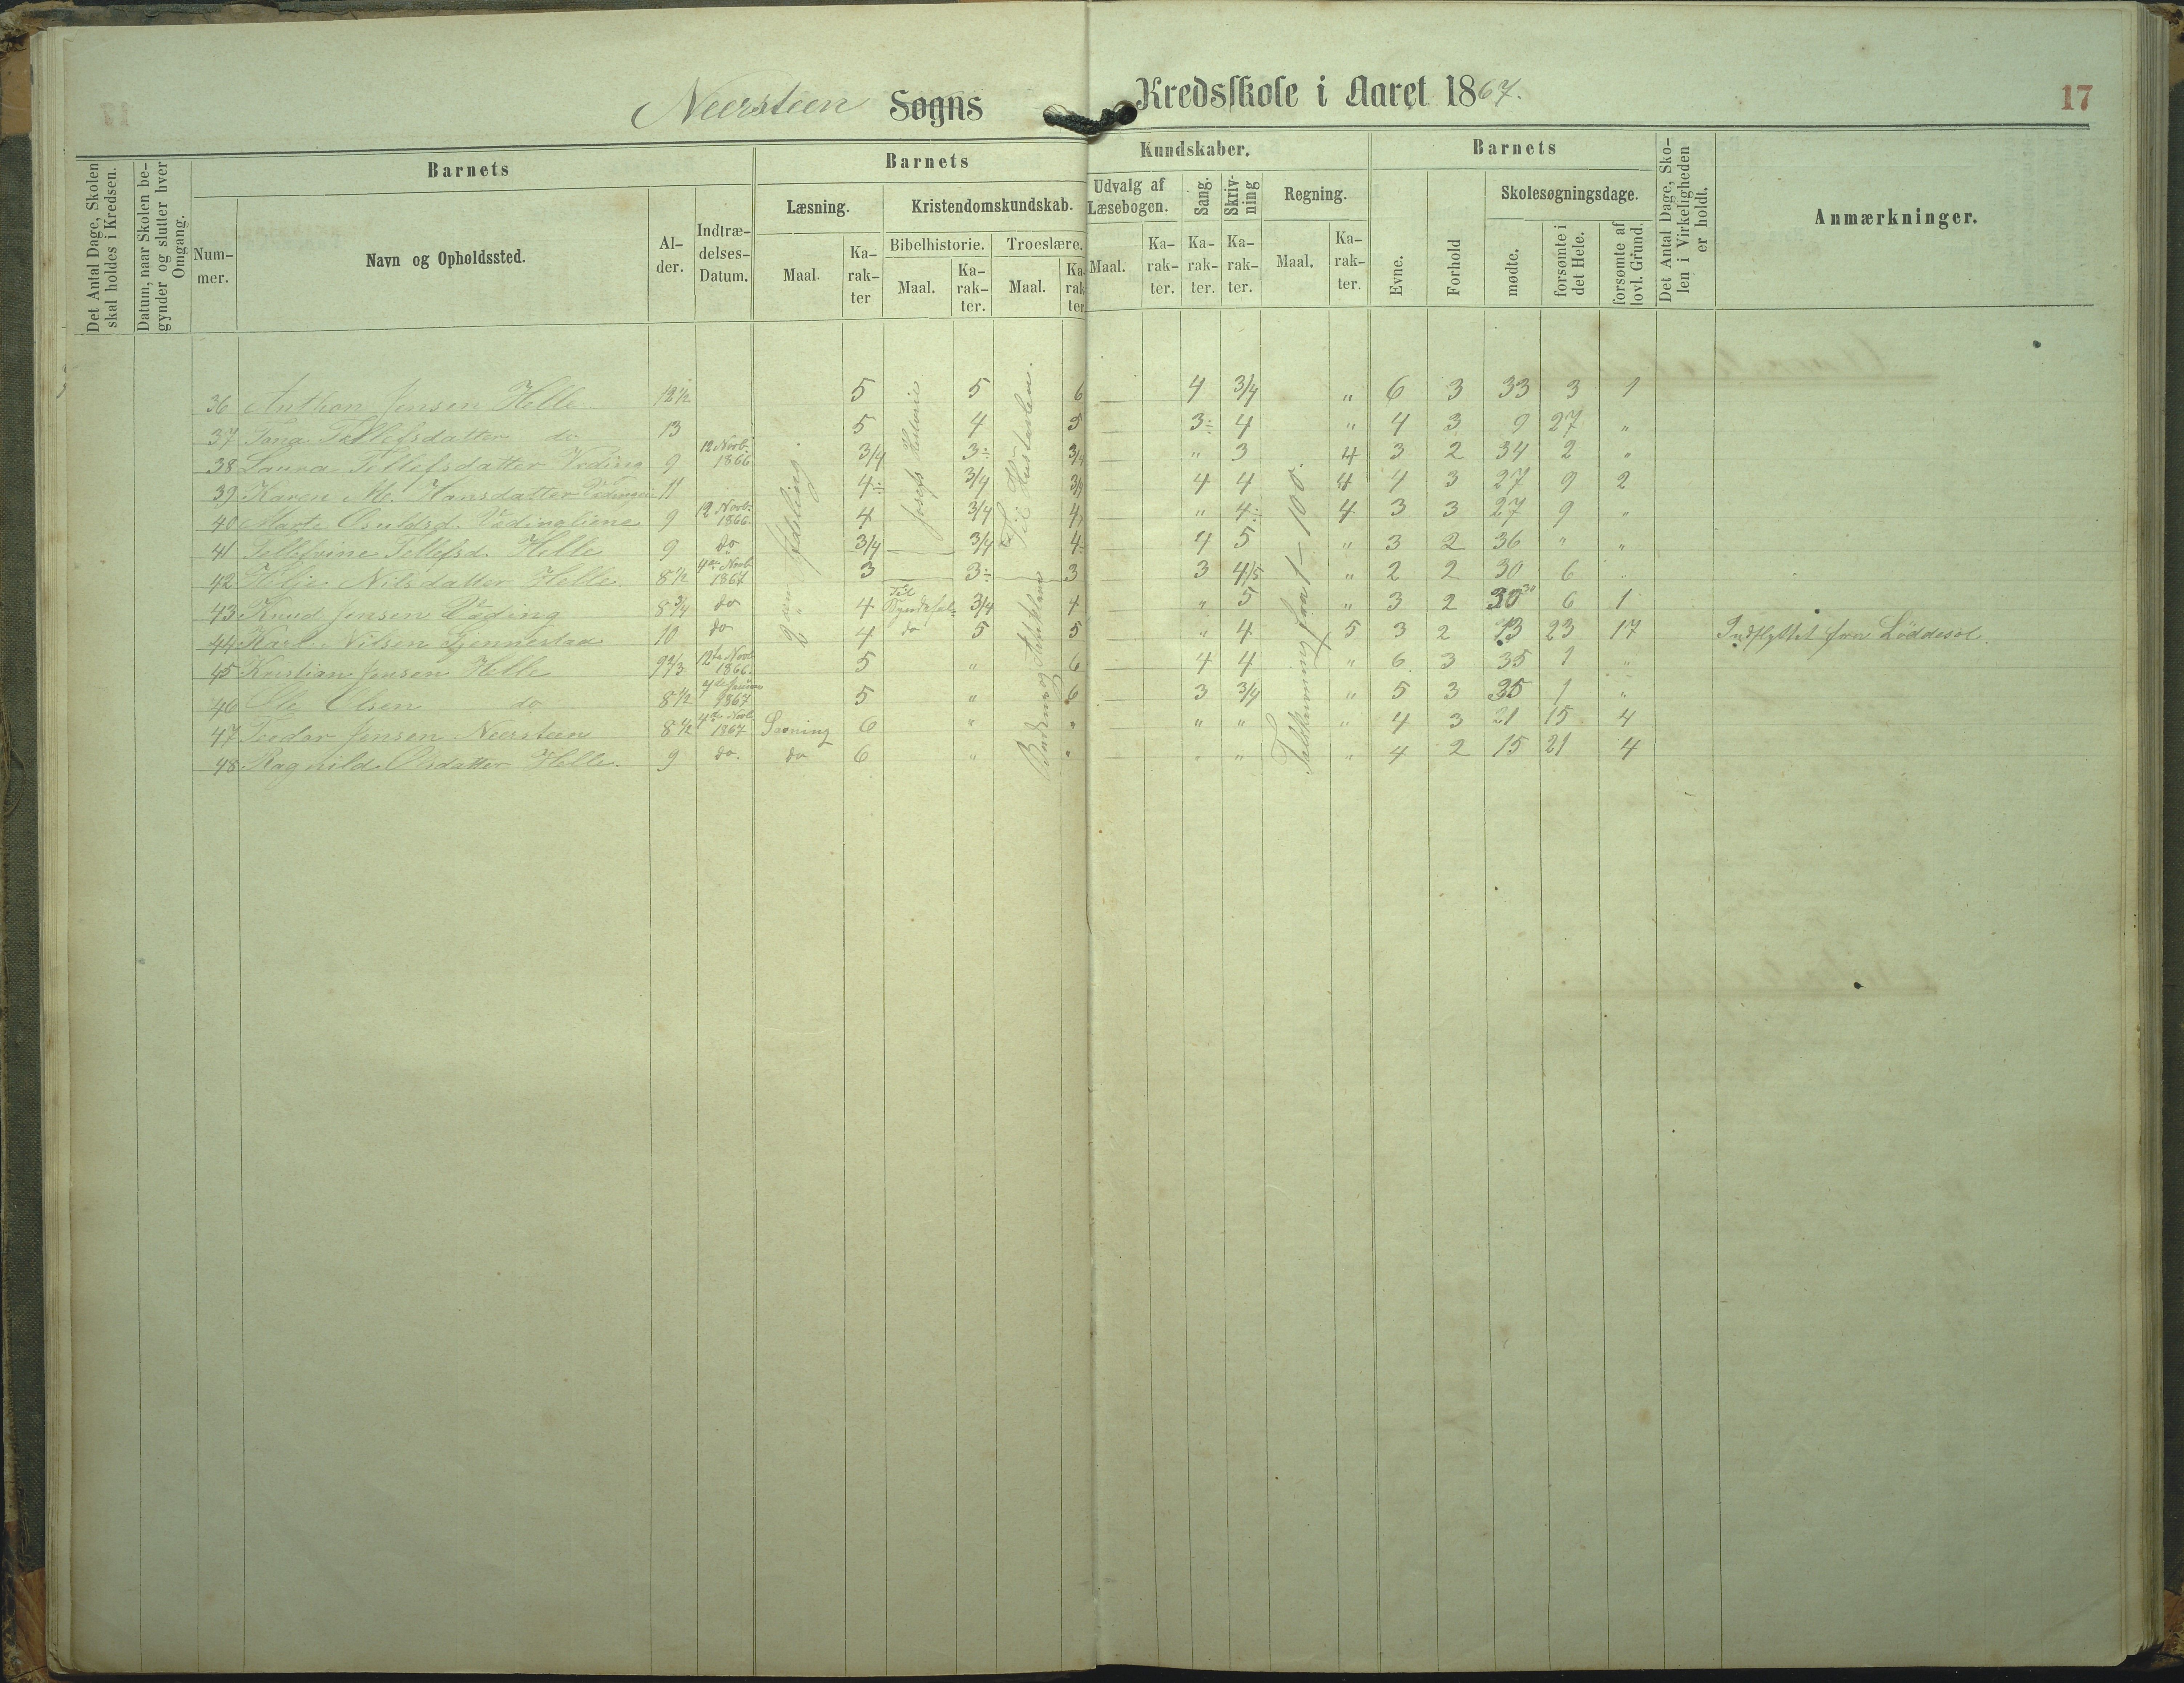 Neersteen Sogns Kredsskole i Aaret 1867.
17
Det Antal Dage, Skolen skal holdes i Kredsen.
Datum, naar Skolen begynder og slutter hver Omgang.
Barnets
Nummer.
Navn og Opholdssted.
Alder.
Indtrædelses-Datum.
Barnets Kundskaber.
Læsning.
Maal.
Karakter
Kristendomskundskab.
Bibelhistorie.
Maal.
Karakter.
Troeslære.
Maal.
Karakter
Udvalg af Læsebogen.
Maal.
Karakter.
Sang.
Karakter.
Skrivning
Karakter.
Regning.
Maal.
Karakter.
Barnets
Evne.
Forhold
Skolesøgningsdage.
mødte.
forsømte i det Hele.
forsømte af lovl. Grund.
Det Antal Dage, Skolen i Virkeligheden er holdt.
Anmærkninger.
36 Anthon Jensen Helle 12 1/2 5 5 6 — 4 3/4 " 6 3 33 3 1
37 Tona Tellefsdatter do 13 5 4 5 — 3÷ 4 " 4 3 9 27 "
38 Laura Tellefsdatter Veding 9 12 Novb. 1866 3/4 3÷ 3/4 — " 3 4 3 2 34 2 "
39 Karen M. Hansdatter 11 4÷ 3/4 3/4 — 4 4 4 4 3 27 9 2
40 Marte Osuldsd. Vedingtiene 9 12 Novb. 1866 4 3/4 4 — " 4÷ 4 3 3 27 9 "
41 Tellefvine Tellefsd. Helle 9 do 3/4 3/4 4÷ — 4 5 " 3 2 36 " "
42 Helje Nilsdatter Helle 8 1/2 4de Novb 1867 3 3÷ 3 — 3 4/5 " 2 2 30 6
43 Knud Jensen Veding 8 3/4 do 4 Til Syndefal. 3/4 4 — " 5 " 3 2 30 6 1
44 Karl Nilsen Gjennestad 10 do 4 do 5 5 — " 4 5 3 2 13 23 17 Indflyttet fra Løddesøl.
45 Kristian Jensen Helle 9 2/3 12te Novb 1866 5 " 6 — 4 4 " 6 3 35 1 "
46 Ole Olsen do 8 1/2 7de Januar 1867 5 " 6 — 3 3/4 " 5 3 35 1 "
47 Teodor Jensen Neersteen 8 1/2 4de Novb 1867 6 " " — " " " 4 3 21 15 4
48 Ragnild Olsdatter Helle. 9 do. do 6 " " — " " " 4 2 15 21 4
Josefs Historie
Til Hustavlen.
1 — 100.